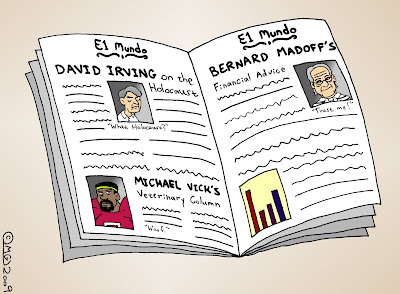 El Mundo
DAVID IRVING on the
Holocaust
"What Holocaust?"
MICHAEL VICK'S
Veterinary Column
"Woof."
El Mundo
BERNARD MADOFF'S
Financial Advice
"Trust me!"
©MGD2009